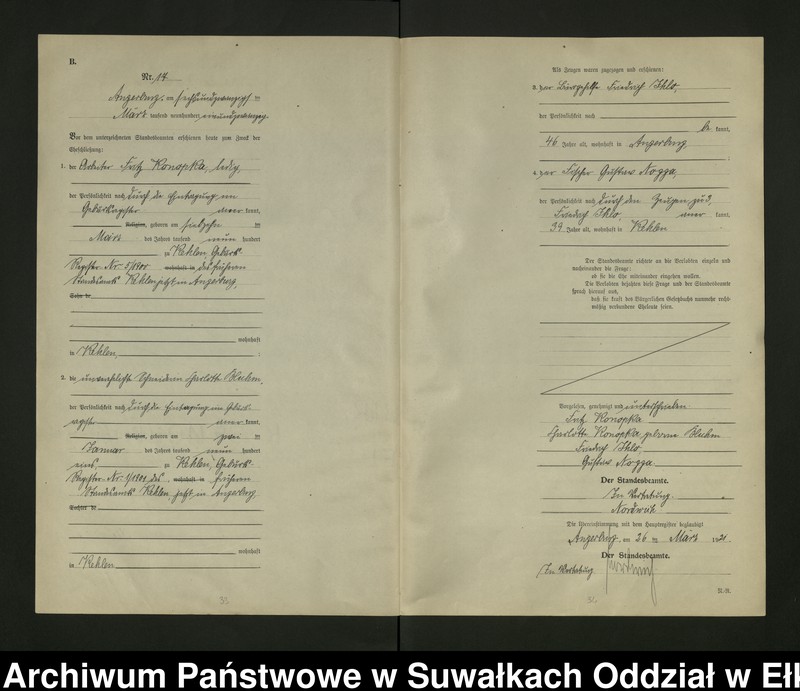 B.
Nr. 17
Angerburg, am sechsundzwanzigsten
März tausend neunhundert einundzwanzig
Vor dem unterzeichneten Standesbeamten erschienen heute zum Zweck der
Eheschließung:
1. der Arbeiter Fritz Konopka, ledig,
der Persönlichkeit nach durch die Eintragung im
Geburtsregister anerkannt,
Religion, geboren am siebzehnten
März des Jahres tausend neunhundert
zu Kehlen, Geburts-
Register Nr. 5/1900 wohnhaft in des früheren
Standesamts Kehlen, jetzt in Angerburg,
Sohn de
wohnhaft
in Kehlen,
2. die unverehelichte Schneiderin Charlotte
der Persönlichkeit nach durch die Eintragung im Geburts-
register anerkannt,
Religion, geboren am zwei ten
Januar des Jahres tausend neunhundert
eins, zu Kehlen, Geburts-
Register Nr. 1/1901 des wohnhaft in früheren
Standesamts Kehlen, jetzt in Angerburg
Tochter de
wohnhaft
in Kehlen
Als Zeugen waren zugezogen und erschienen:
3. der Bürogehilfe Friedrich
der Persönlichkeit nach
bekannt,
46 Jahre alt, wohnhaft in Angerburg
;
4. der Fischer Gustav Nogga,
der Persönlichkeit nach durch den Zeugen zu 3,
Friedrich anerkannt,
39 Jahre alt, wohnhaft in Kehlen
Der Standesbeamte richtete an die Verlobten einzeln und
nacheinander die Frage:
ob sie die Ehe miteinander eingehen wollen.
Die Verlobten bejahten diese Frage und der Standesbeamte
sprach hierauf aus,
daß sie kraft des Bürgerlichen Gesetzbuchs nunmehr recht-
mäßig verbundene Eheleute seien.
Vorgelesen, genehmigt und unterschrieben
Fritz Konopka
Charlotte Konopka geborene
Friedrich
Gustav Nogga
Der Standesbeamte.
In Vertretung.
Die Übereinstimmung mit dem Hauptregister beglaubigt
Angerburg, am 26 ten März 1921.
Der Standesbeamte.
In Vertretung.
Archiwum Państwowe w Suwałkach Oddział w Ełk